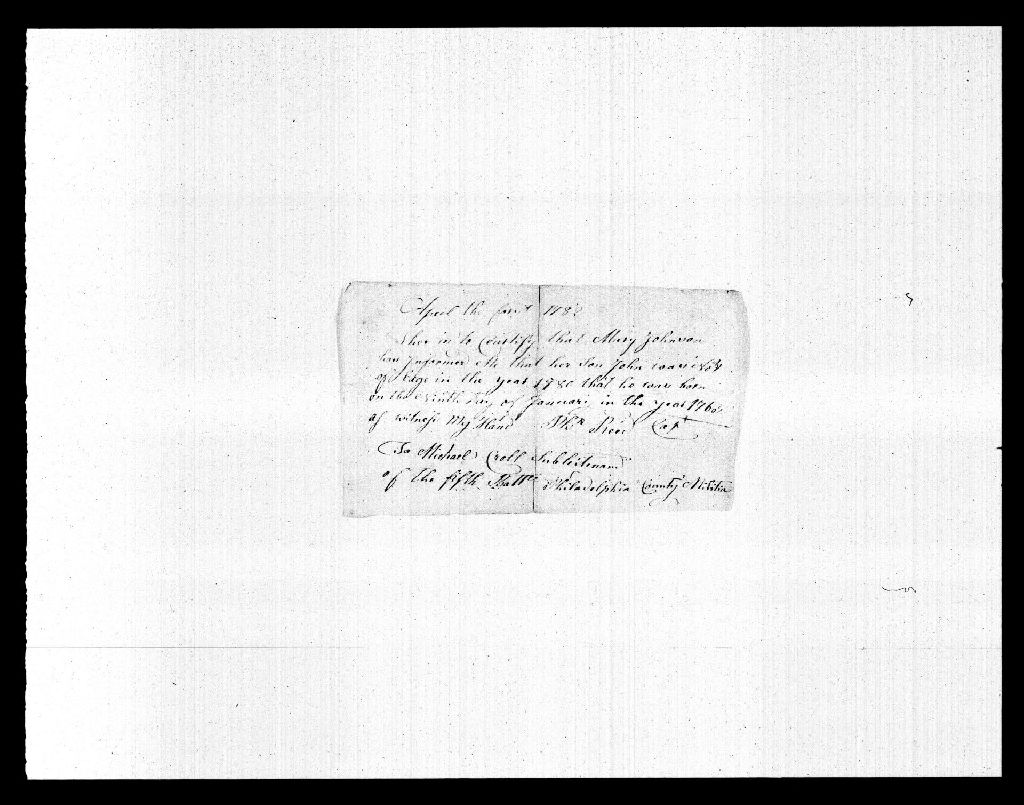 April the first 1782
this is to Certify that Mary Johnson
has Informed Me that her Son John was not
of Age in the year 1780 that he was born
on the Ninth day of Januari in the year 176
as witness My Hand Reed Capt
To Michael Croll Sublieutenant
of the fifth Battn Philadelphia County Militia